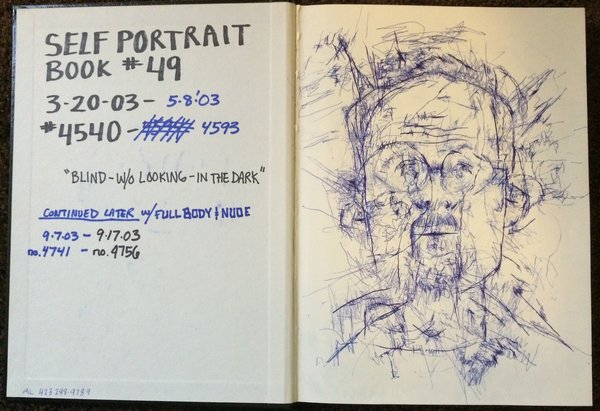 SELF PORTRAIT
BOOK #49
3-20-03 - 5-8-'03
#4540 - 4593
"BLIND - W/O LOOKING - IN THE DARK"
CONTINUED LATER W/ FULL BODY & NUDE
9.7.03 - 9.17.03
no. 4741 - no. 4756